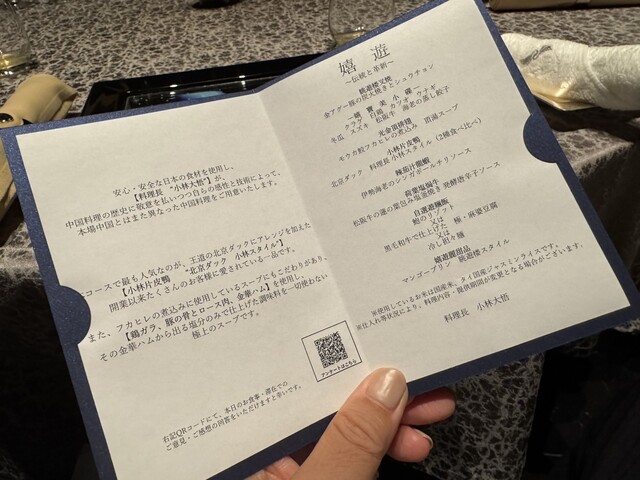 安心・安全な日本の食材を使用し、
【料理長 “小林大悟”】が、
中国料理の歴史に敬意を払いつつ自らの感性と技術によって、
本場中国とはまた異なった中国料理をご用意いたします。
コースで最も人気なのが、王道の北京ダックにアレンジを加えた
【小林片皮鴨 “北京ダック 小林スタイル”】
開業以来たくさんのお客様に愛されている一品です。
また、フカヒレの煮込みに使用しているスープにもこだわりがあり、
【鶏ガラ、豚の骨とロース肉、金華ハム】を使用し、
その金華ハムから出る塩分のみで仕上げた調味料を一切使わない
極上のスープです。
アンケートはこちら
右記QRコードにて、本日のお食事・滞在での
ご意見・ご感想の回答をいただけますと幸いです。
嬉 遊
～伝統と革新～
旅遊楼叉焼
金アグー豚の炭火焼きとシュウチョン
クラゲ 白鶏 カツオ ウナギ
冬瓜 スズキ 松阪牛 海老の蒸し餃子
モウカ鮫フカヒレの煮込み 頂湯スープ
小林片皮鴨
北京ダック 料理長 小林スタイル（2種食べ比べ）
伊勢海老のシンガポールチリソース
松阪牛の蓮の葉包み塩釜焼き 発酵唐辛子ソース
自選遊麺飯
鮑のリゾット
又は
黒毛和牛で仕上げた 極・麻婆豆腐
又は
冷し担々麺
マンゴープリン 旅遊楼スタイル
※使用しているお米は国産米、タイ国産ジャスミンライスです。
※仕入れ等状況により、料理内容・提供期間が変更となる場合がございます。
料理長 小林大悟